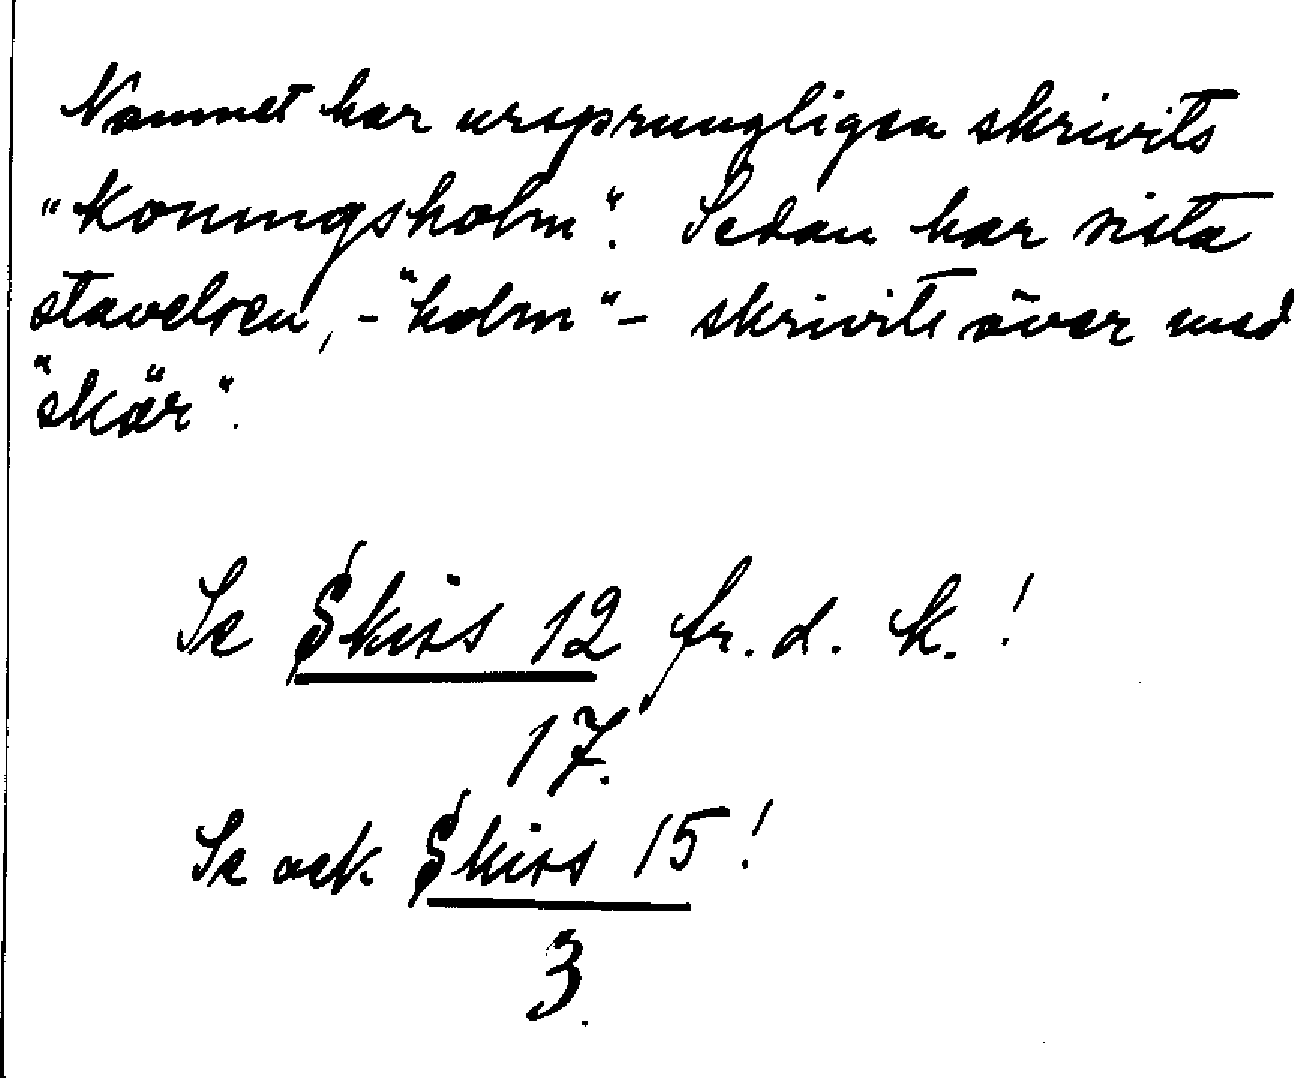 Namnet har ursprungligen skrivits
"Koningsholm". Sedan har sista
stavelsen, - "holm" - skrivits över med
"skär".
Se Skiss 12 fr. d. K.!
17.
Se ock Skiss 15!
3.